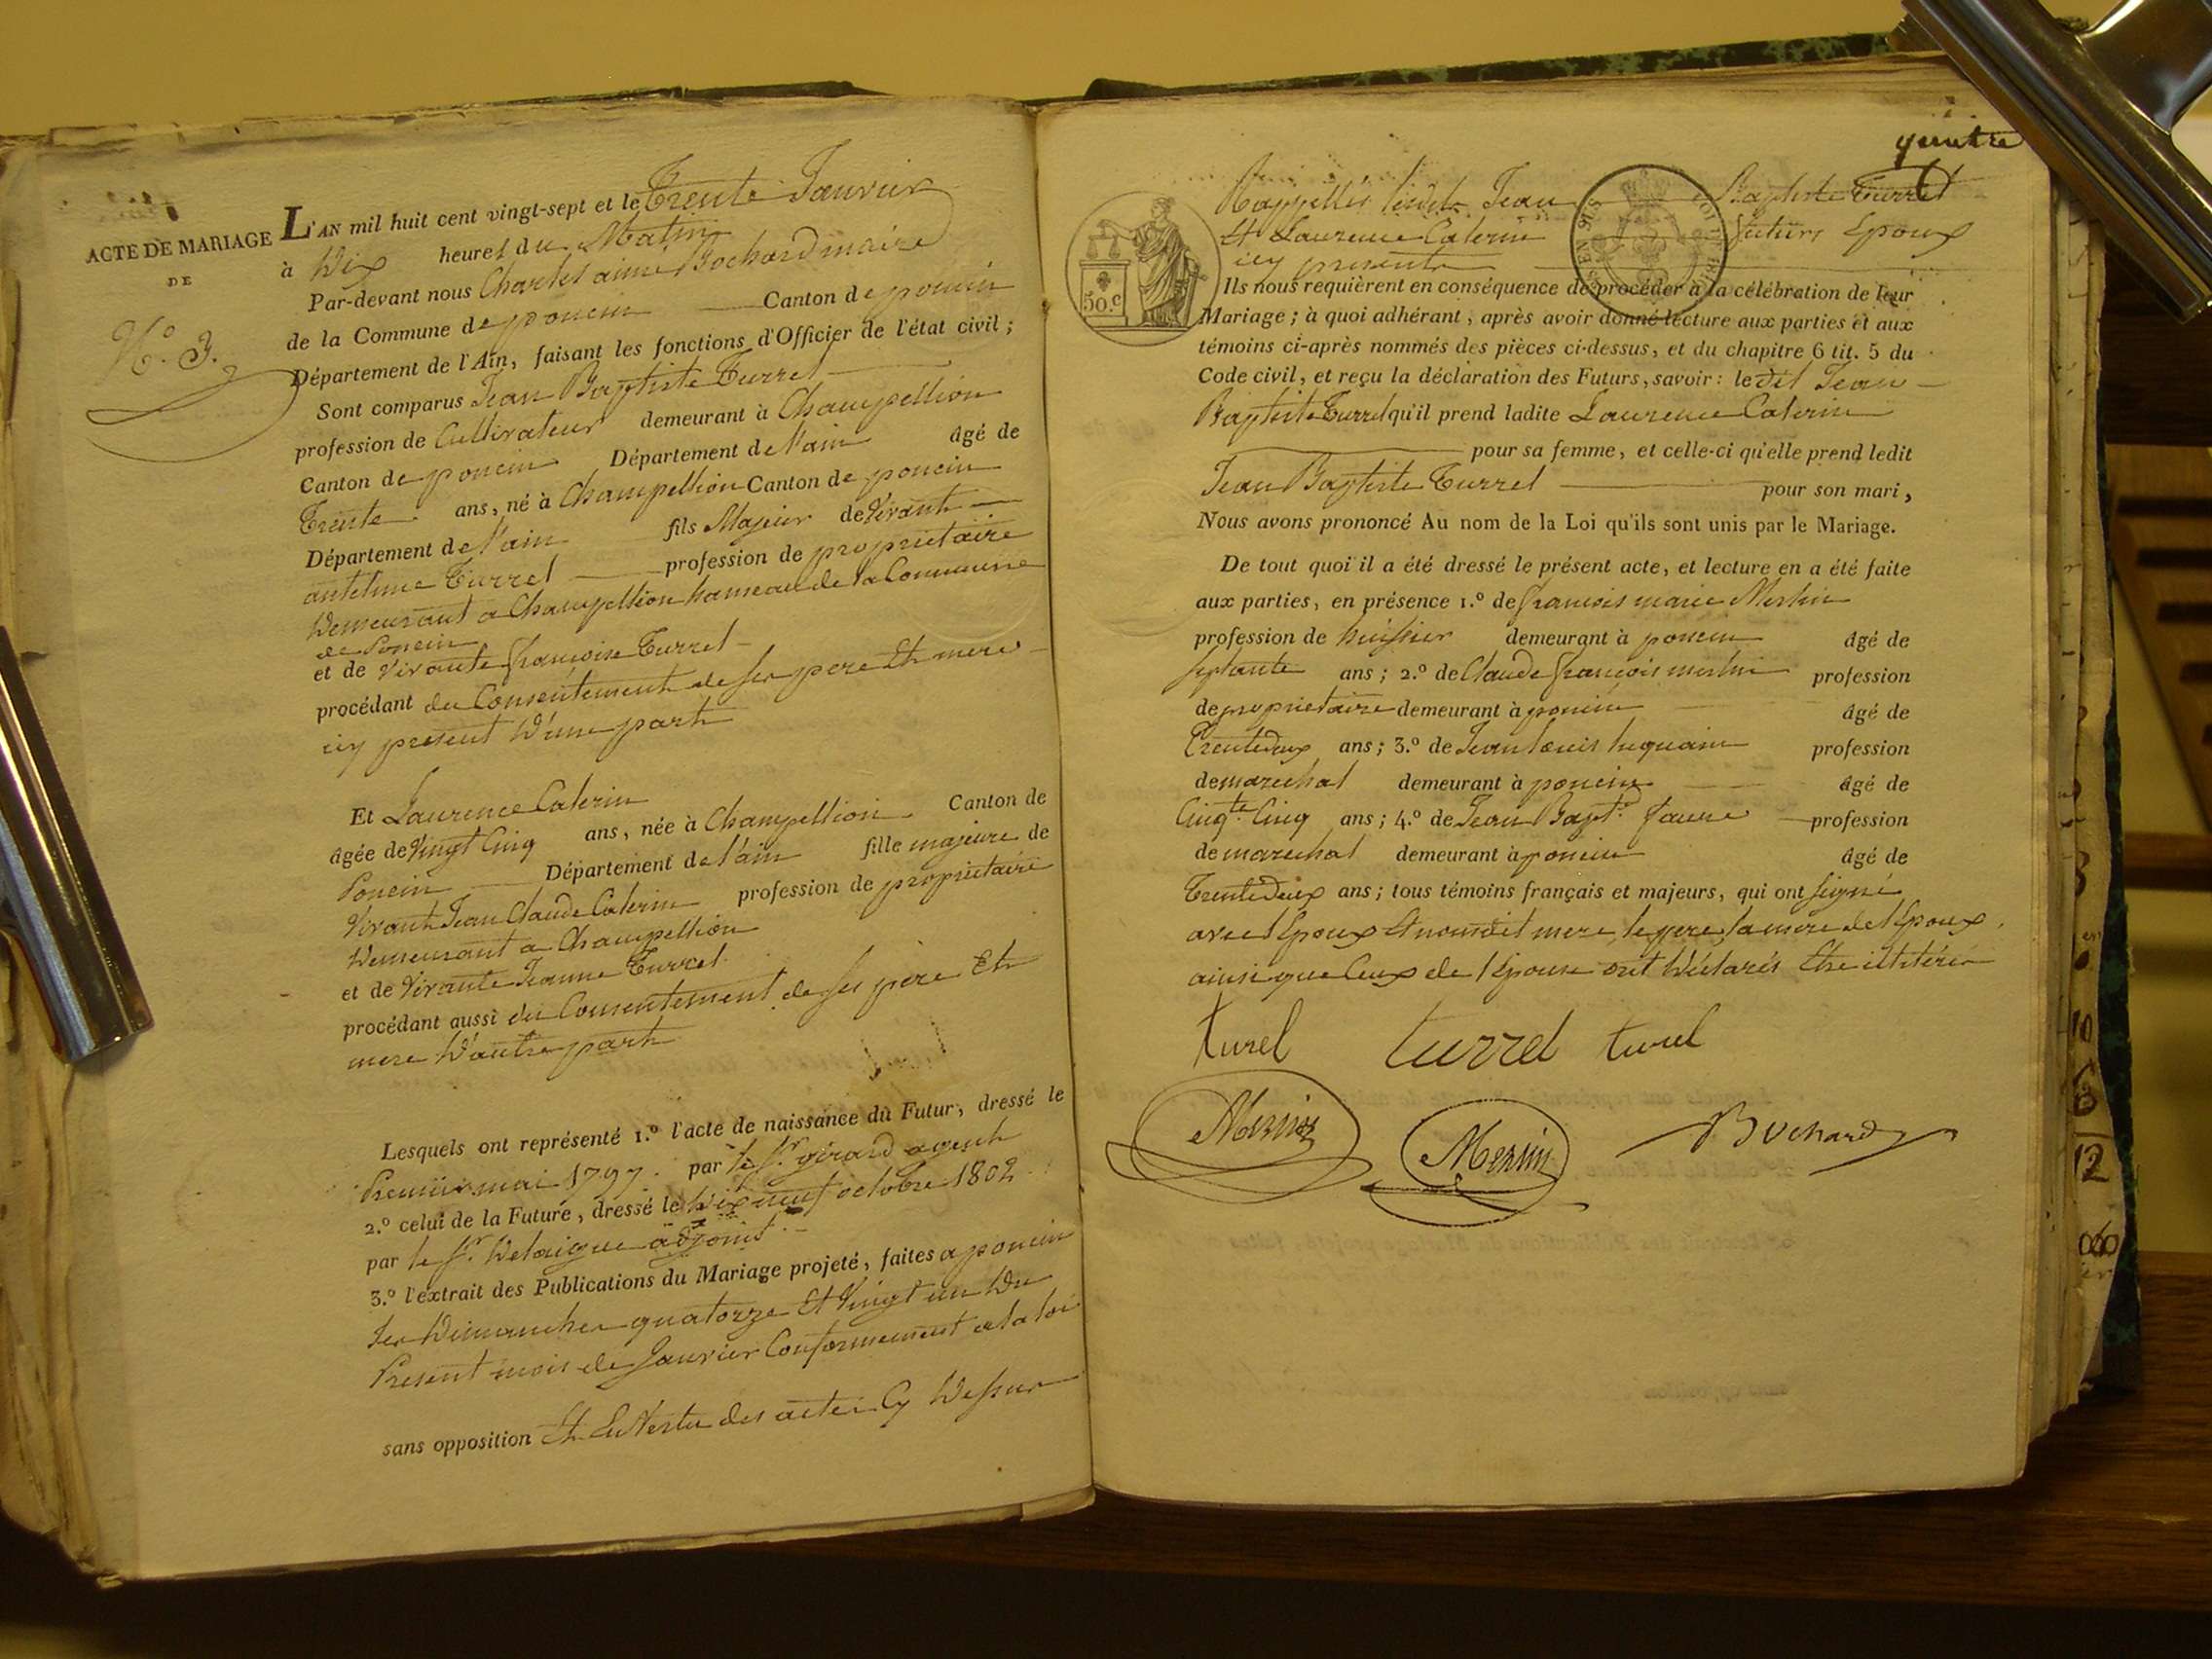 ACTE DE MARIAGE
DE
N.o 3.
L'AN mil huit cent vingt-sept et le Trente Janvier
à Dix heures du Matin
Par-devant nous Charles aimé Bochard maire
de la Commune de poncin Canton de poncin
Département de l'Ain, faisant les fonctions d'Officier de l'état civil ;
Sont comparus Jean Baptiste Turrel
profession de Cultivateur demeurant à Champellion
Canton de poncin Département de l'ain âgé de
Trente ans, né à Champellion Canton de poncin
Département de l'ain fils Majeur de Vivant
antelme Turrel profession de proprietaire
Demeurant a Champellion hameau de la Commune
de Poncin
et de Vivante françoise Turrel
procédant du Consentement de ses pere Et mere
icy present D'une part
Et Laurence Caterin
âgée de Vingt Cinq ans, née à Champellion Canton de
Poncin Département de l'ain fille majeure de
Vivant Jean Claude Caterin profession de proprietaire
Demeurant a Champellion
et de Vivante Jeanne Turrel
procédant aussi du Consentement de ses pere Et
mere D'autre part
Lesquels ont représenté 1.o l'acte de naissance du Futur, dressé le
Premier mai 1797. par le Sr. gérard agent
2.o celui de la Future, dressé le Dix neuf octobre 1802
par le Sr. Delaigue adjoint
3.o l'extrait des Publications du Mariage projeté, faites a poncin
les Dimanches quatorze Et Vingt un Du
Present mois de Janvier Conformement a la loi
sans opposition Et En Vertu des actes Cy Dessus
50.c
Rappellés lesdits Jean Baptiste Turrel
Et Laurence Caterin futurs Epoux
icy presents
Ils nous requièrent en conséquence de procéder à la célébration de leur
Mariage ; à quoi adhérant, après avoir donné lecture aux parties et aux
témoins ci-après nommés des pièces ci-dessus, et du chapitre 6 tit. 5 du
Code civil, et reçu la déclaration des Futurs, savoir : le dit Jean
Baptiste Turrel qu'il prend ladite Laurence Caterin
pour sa femme, et celle-ci qu'elle prend ledit
Jean Baptiste Turrel pour son mari,
Nous avons prononcé Au nom de la Loi qu'ils sont unis par le Mariage.
De tout quoi il a été dressé le présent acte, et lecture en a été faite
aux parties, en présence 1.o de françois marie Merlin
profession de huissier demeurant à poncin âgé de
septante ans ; 2.o de Claude françois merlin profession
de proprietaire demeurant à poncin âgé de
Trente deux ans ; 3.o de Jean louis profession
de marechal demeurant à poncin âgé de
Cinq.te Cinq ans ; 4.o de Jean Bapt.te faure profession
de marechal demeurant à poncin âgé de
Trente Deux ans ; tous témoins français et majeurs, qui ont signé
avec l'Epoux Et nous le pere la mere de l'Epoux
ainsi que Ceux de l'épouse ont Déclarés Etre illitérés
turel turrel turel
Merlin Merlin Bochard